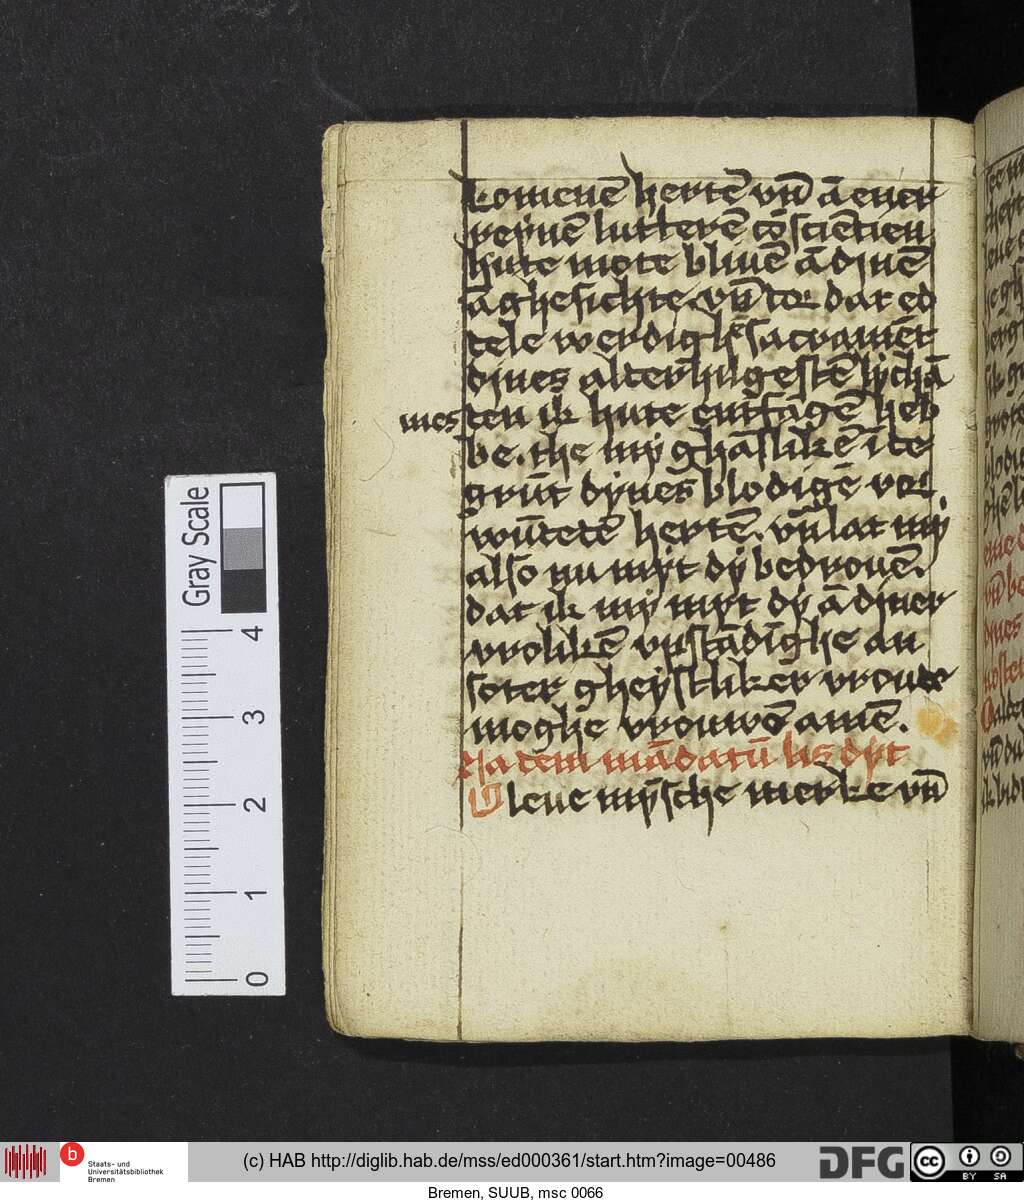 komenē hertē vn̄ ā ener
reynē lutterē cōsciētien
hute mote bliuē ā dinē
āghesichte vn̄ tor dat ed
tele werdighe sacramēt
dines alterhilgestē lychā
mes ten ik hute entfāgē heb
be. the my ghāslikē ī te
grūt dynes blodigē vor
wūtetē hertē. vn̄ lat my
also nu myt dy bedrouē.
dat ik my myt dy ā diner
vrolikē vpstādīghe an
soter gheystliker vroude
moghe vrouwē amē.
Na dem mādatū lis dyt
O leue mysche merke vn̄
Gray Scale
4
3
2
1
0
b Staats- und
Universitätsbibliothek
Bremen
(c) HAB http://diglib.hab.de/mss/ed000361/start.htm?image=00486
DFG
cc BY SA
Bremen, SUUB, msc 0066